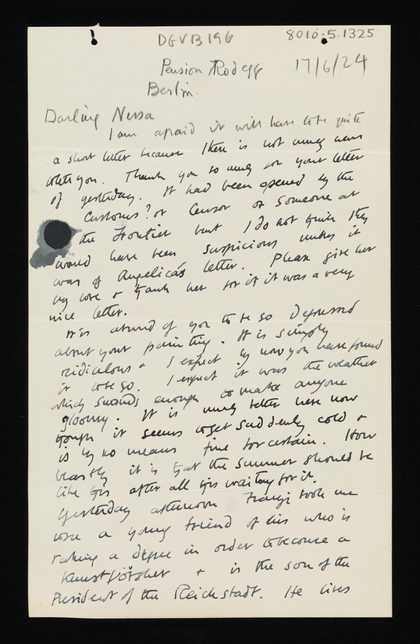 DGVB196
8010.5.1325
Pension Rodegg
17/6/24
Berlin.
Darling Nessa
I am afraid it will have to be quite
a short letter because there is not much news
to tell you. Thank you so much for your letter
of yesterday. It had been opened by the
Customs? or Censor or someone at
the Frontier but I do not quite
would have been suspicious unless it
was of Angelica's letter. Please give her
my love & thank her for it it was a very
nice letter.
It is absurd of you to be so depressed
about your painting. It is simply
ridiculous & I expect by now you have found
it to be so. I expect it was the weather
which sounds enough to make anyone
gloomy. It is much better here now
though it seems to get suddenly cold &
is by no means fine for certain. How
beastly it is that the summer should be
like this after all this waiting for it.
Yesterday afternoon Franzi took me
to see a young friend of his who is
taking a degree in order to become a
& is the son of the
President of the Reichstadt. He lives